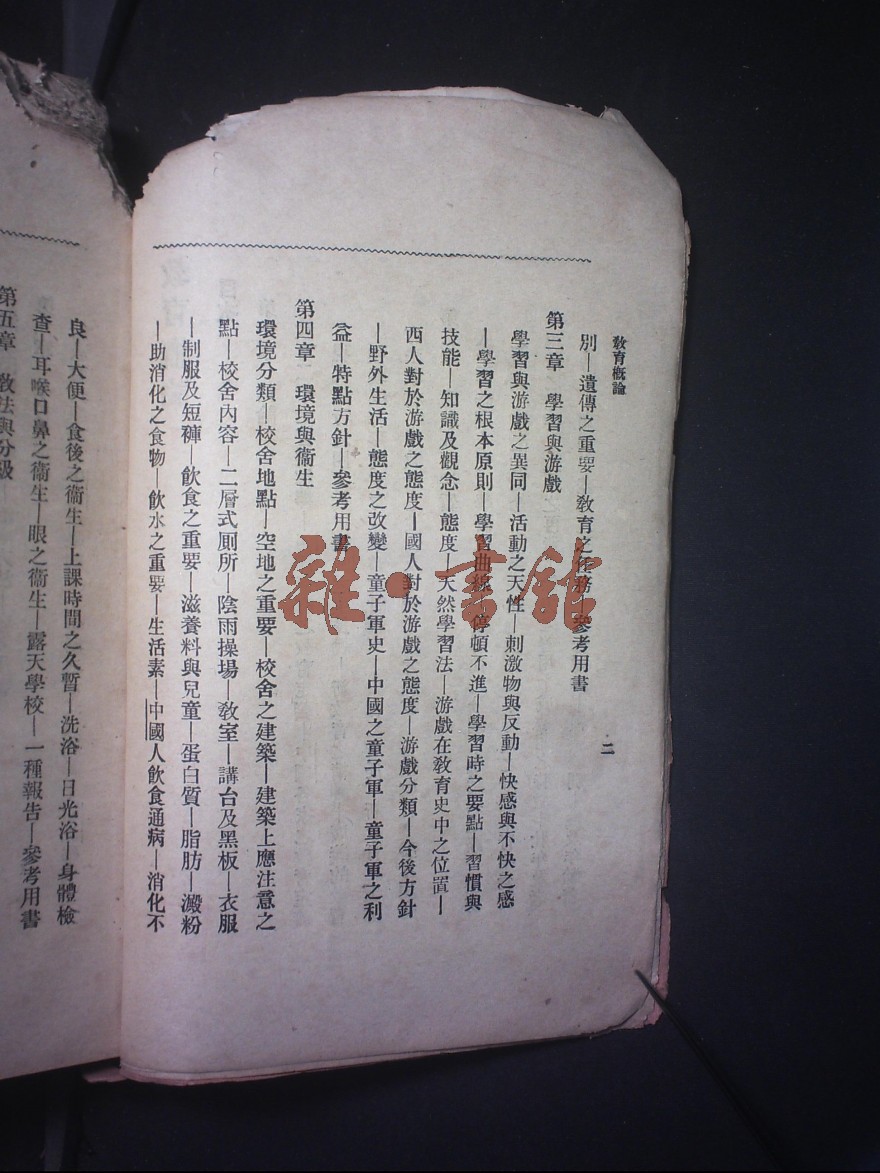 教育概論
二
別—遺傳之重要—教育之任務—參考用書
第三章　學習與游戲
學習與游戲之異同—活動之天性—刺激物與反動—快感與不快之感
—學習之根本原則—學習曲線—停頓不進—學習時之要點—習慣與
技能—知識及觀念—態度—天然學習法—游戲在教育史中之位置—
西人對於游戲之態度—國人對於游戲之態度—游戲分類—今後方針
—野外生活—態度之改變—童子軍史—中國之童子軍—童子軍之利
益—特點方針—參考用書
第四章　環境與衞生
環境分類—校舍地點—空地之重要—校舍之建築—建築上應注意之
點—校舍內容—二層式厠所—陰雨操場—教室—講台及黑板—衣服
—制服及短褲—飲食之重要—滋養料與兒童—蛋白質—脂肪—澱粉
—助消化之食物—飲水之重要—生活素—中國人飲食通病—消化不
良—大便—食後之衞生—上課時間之久暫—洗浴—日光浴—身體檢
查—耳喉口鼻之衞生—眼之衞生—露天學校—一種報告—參考用書
第五章　教法與分級
雜·書館